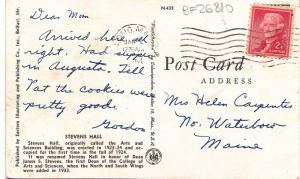 N-435
BF26810
Dear Mom
Arrived here all
right. Had supper
in Augusta. Tell
Pat the cookies were
pretty good.
Gordon
STEVENS HALL
Stevens Hall, originally called the Arts and
Sciences Building, was erected in 1923-24 and oc-
cupied for the first time in the fall of 1924.
It was renamed Stevens Hall in honor of Dean
James S. Stevens, the first Dean of the College of
Arts and Sciences, when the North and South Wings
were added in 1933.
Post Card
ADDRESS
Mrs Helen Carpenter
No. Waterboro
Maine